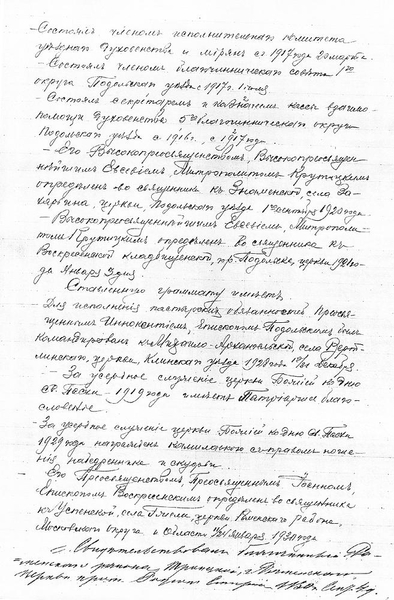 -Состоялъ членомъ исполнительнаго комитета
духовенства и мірянъ съ 1917 года 20 марта.
-Состоялъ членомъ благочинническаго совѣта 1го
округа Подольскаго уѣзда съ 1917 г. 1 іюля
-Состоялъ секретаремъ и казначеемъ кассы взаимо-
помощи духовенства 5го благочинническаго округа
Подольскаго уѣзда съ 1916 г., съ 1917 года
-Его Высокопреосвященствомъ, Высокопреосвящен-
нѣйшимъ Евсевіемъ, Митрополитомъ Крутицкимъ
опредѣленъ во священники къ Знаменской, села За-
харьина, церкви, Подольскаго уѣзда 1го октября 1920 года.
-Высокопреосвященнѣйшимъ Евсевіемъ, Митрополи-
томъ Крутицкимъ опредѣленъ во священника къ
Воскресенской кладбищенской, гр. Подольска, церкви 1921 го-
да Января 3 дня.
Ставленную граммату имѣетъ.
-Для исполненія пастырскихъ обязанностей Преосвя-
щеннымъ Иннокентіемъ, Епископомъ Подольскимъ былъ
командированъ къ Михаило-Архангельской, села
церкви, Клинскаго уѣзда 1928 года декабря
-За усердное служеніе церкви Божіей ко дню
св. Пасхи - 1919 года имѣетъ Патріаршее благо-
словеніе.
За усердное служеніе церкви Божіей ко дню св. Пасхи
1929 года награжденъ камилавкою съ правомъ ноше-
нія набедренника и скуфьи.
-Его Преосвященствомъ, Преосвященнымъ
Епископомъ Воскресенскимъ опредѣленъ во священника
къ Успенской, села церкви, района,
Московскаго округа и области января 1930 года